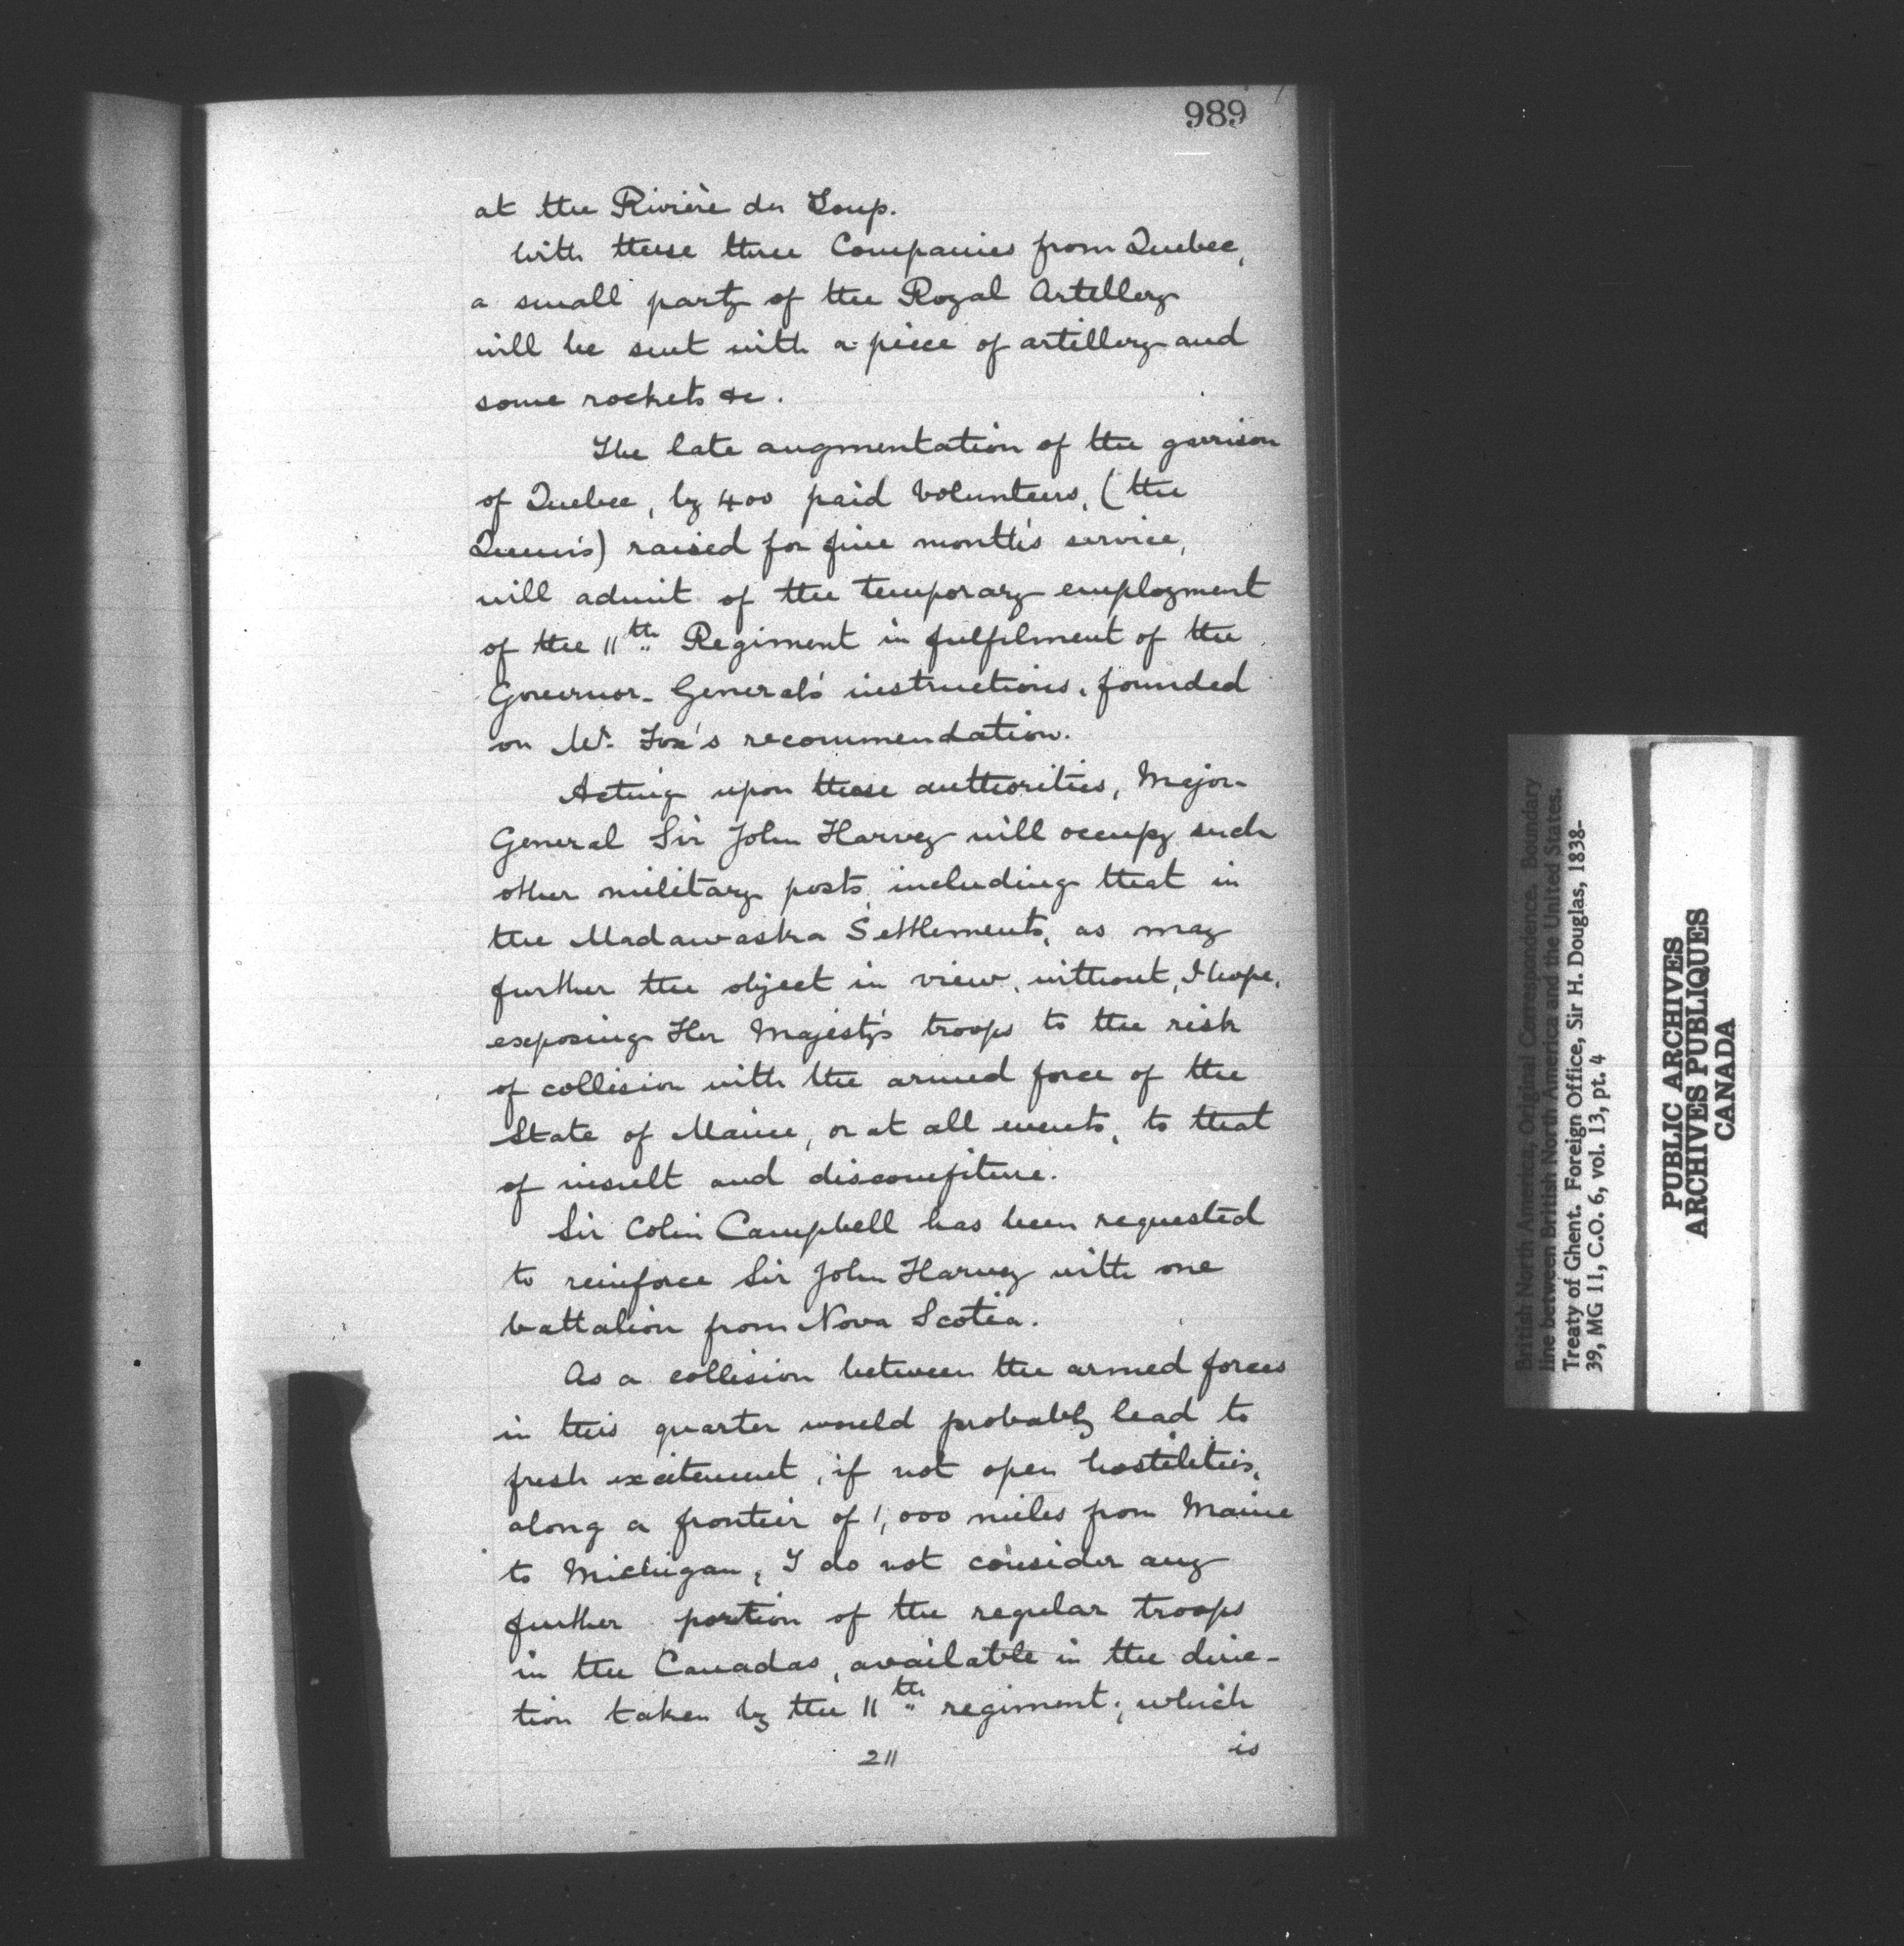 989
at the Rivière du Loup.
With these three Companies from Quebec,
a small party of the Royal Artillery
will be sent with a piece of artillery and
some rockets &c.
The late augmentation of the garrison
of Quebec, by 400 paid Volunteers, (the
Queen's) raised for five month's service,
will admit of the temporary employment
of the 11th Regiment in fulfilment of the
Governor-General's instructions, founded
on Mr. Fox's recommendation.
Acting upon these authorities, Major-
General Sir John Harvey will occupy such
other military posts, including that in
the Madawaska Settlements, as may
further the object in view, without, I hope,
exposing Her Majesty's troops to the risk
of collision with the armed force of the
State of Maine, or at all events, to that
of insult and discomfiture.
Sir Colin Campbell has been requested
to reinforce Sir John Harvey with one
battalion from Nova Scotia.
As a collision between the armed forces
in this quarter would probably lead to
fresh excitement, if not open hostilities,
along a frontier of 1,000 miles from Maine
to Michigan, I do not consider any
further portion of the regular troops
in the Canadas, available in the direc-
tion taken by the 11th regiment; which
is
211
British North America, Original Correspondence. Boundary
line between British North America and the United States.
Treaty of Ghent. Foreign Office, Sir H. Douglas, 1838-
39, MG 11, C.O. 6, vol. 13, pt. 4
PUBLIC ARCHIVES
ARCHIVES PUBLIQUES
CANADA